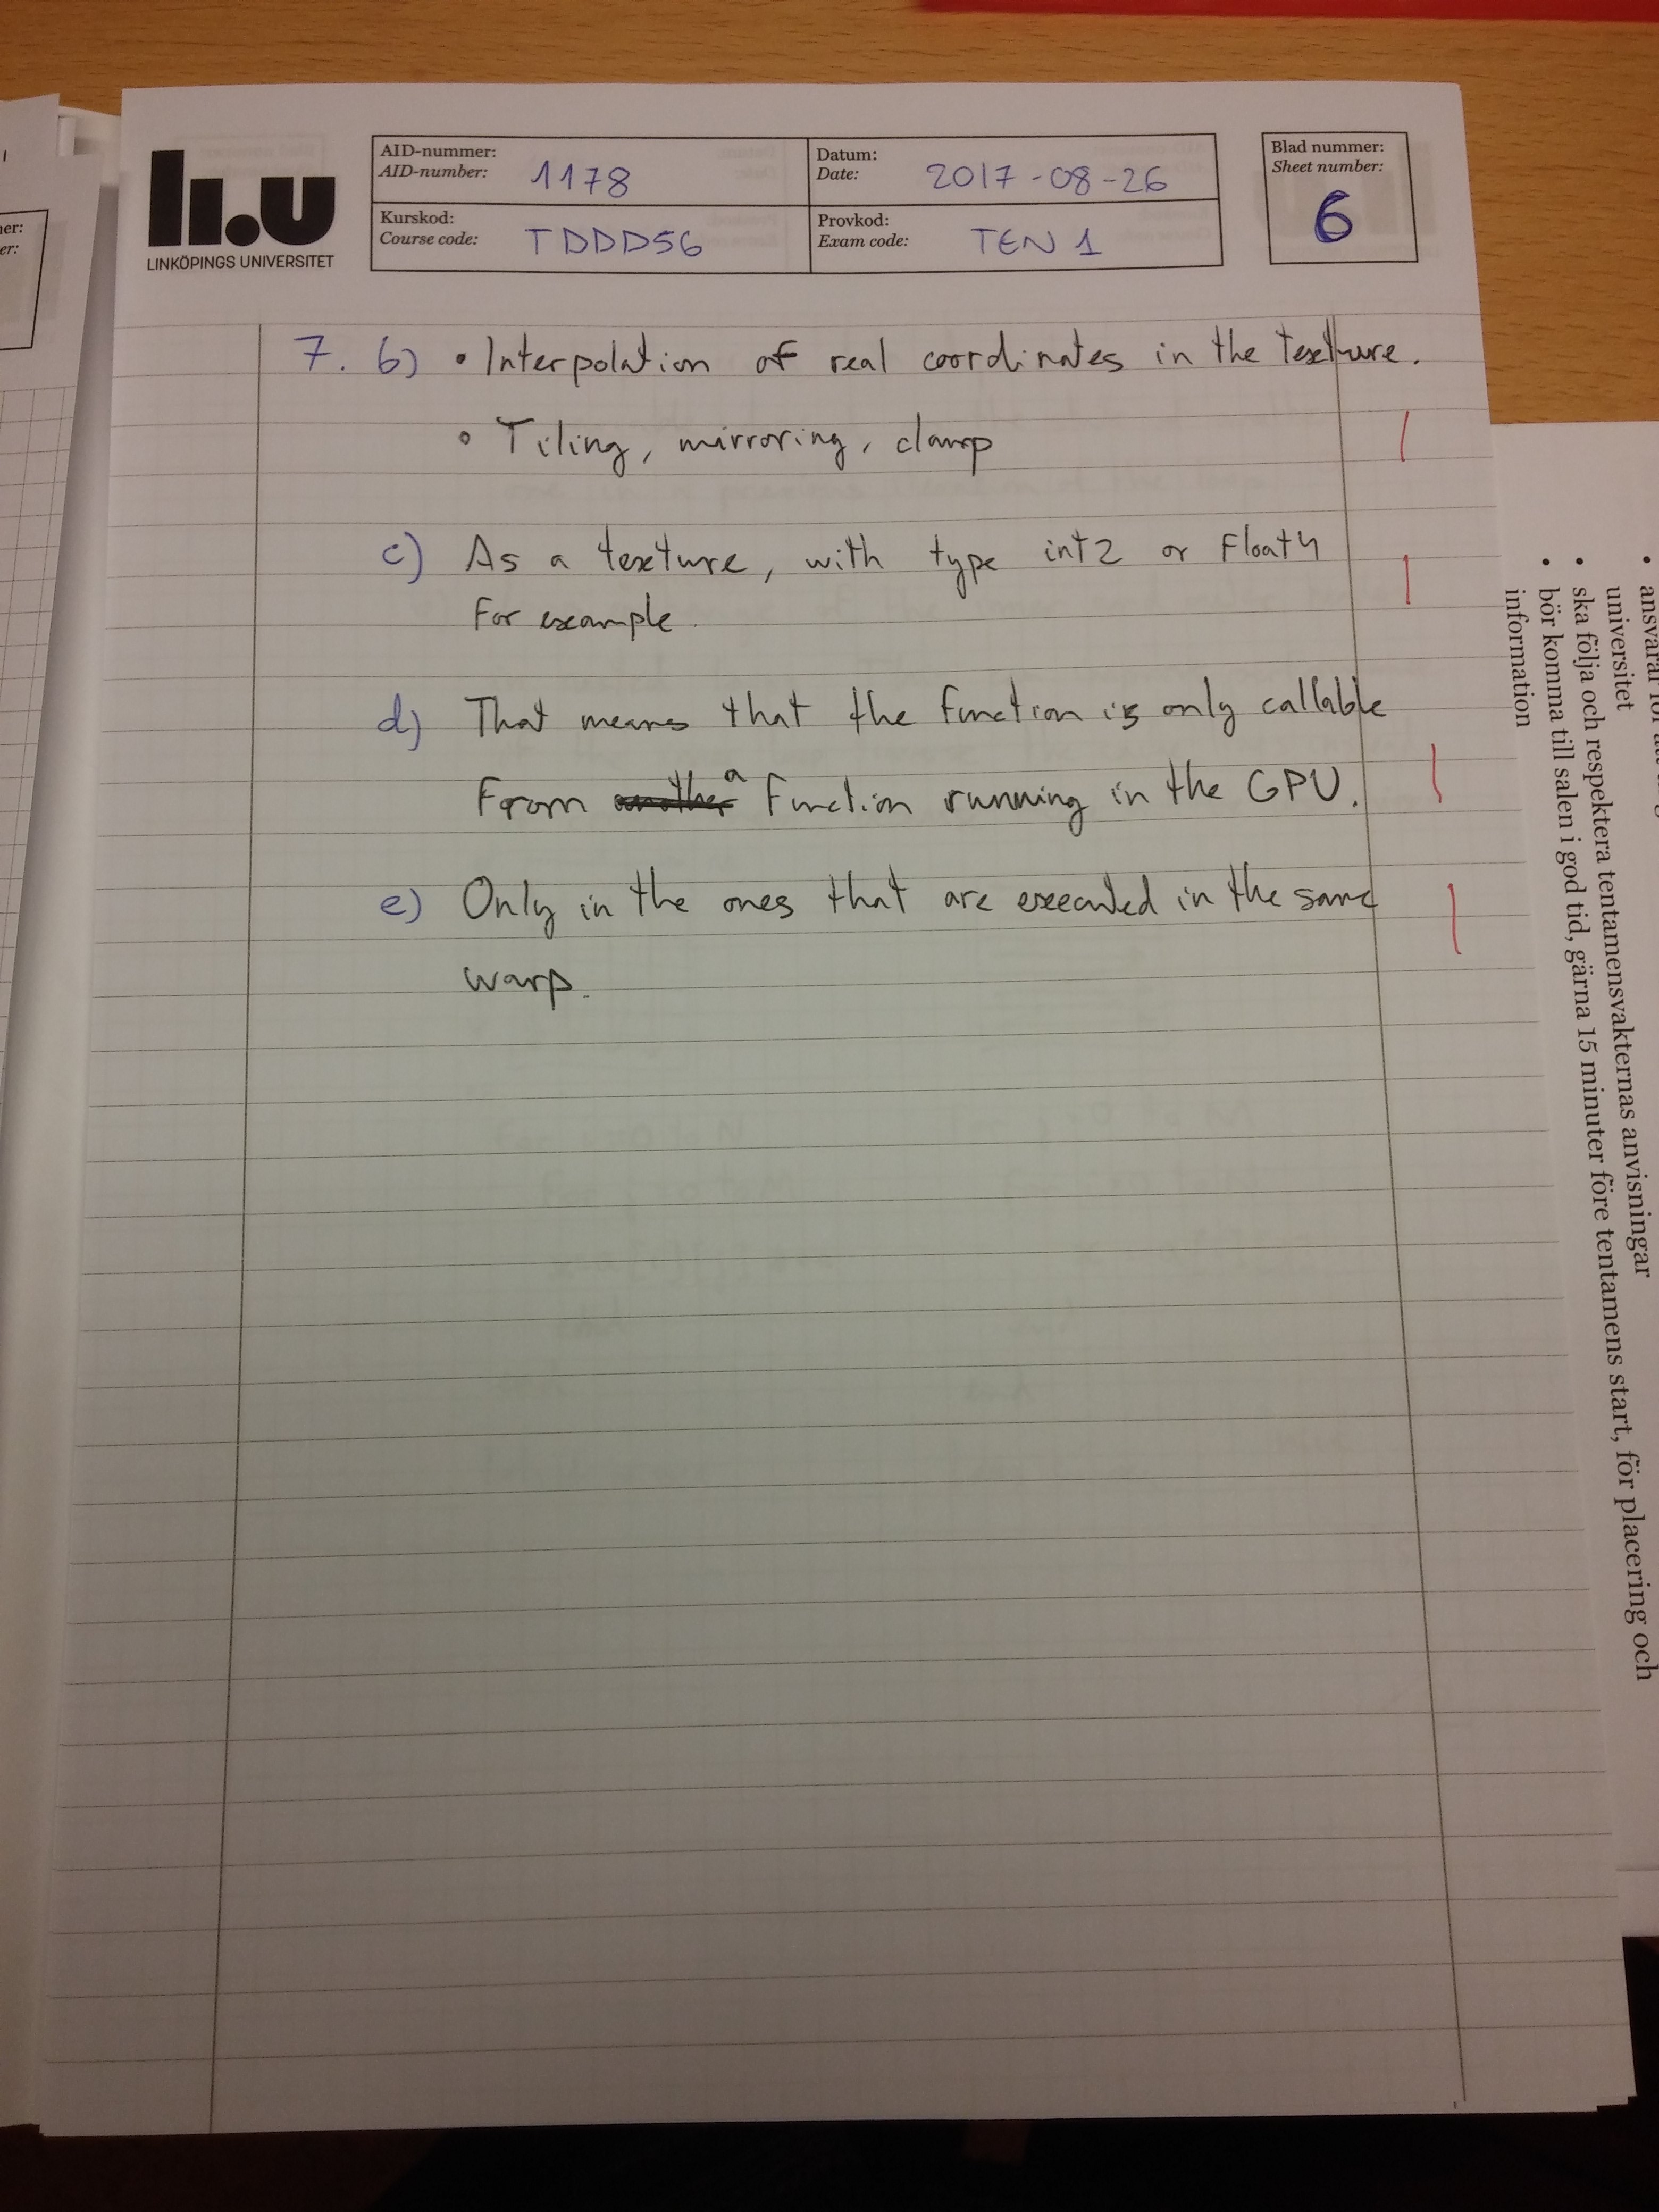 li.u
LINKÖPINGS UNIVERSITET
AID-nummer:
AID-number: 1178
Datum:
Date: 2017-08-26
Kurskod:
Course code: TDDD56
Provkod:
Exam code: TEN 1
Blad nummer:
Sheet number:
6
7. b) • Interpolation of real coordinates in the texture.
• Tiling, mirroring, clamp
c) As a texture, with type int2 or float4
for example.
d) That means that the function is only callable
from a function running in the GPU.
e) Only in the ones that are executed in the same
warp.
universitet
• ska följa och respektera tentamensvakternas anvisningar
• bör komma till salen i god tid, gärna 15 minuter före tentamens start, för placering och
information